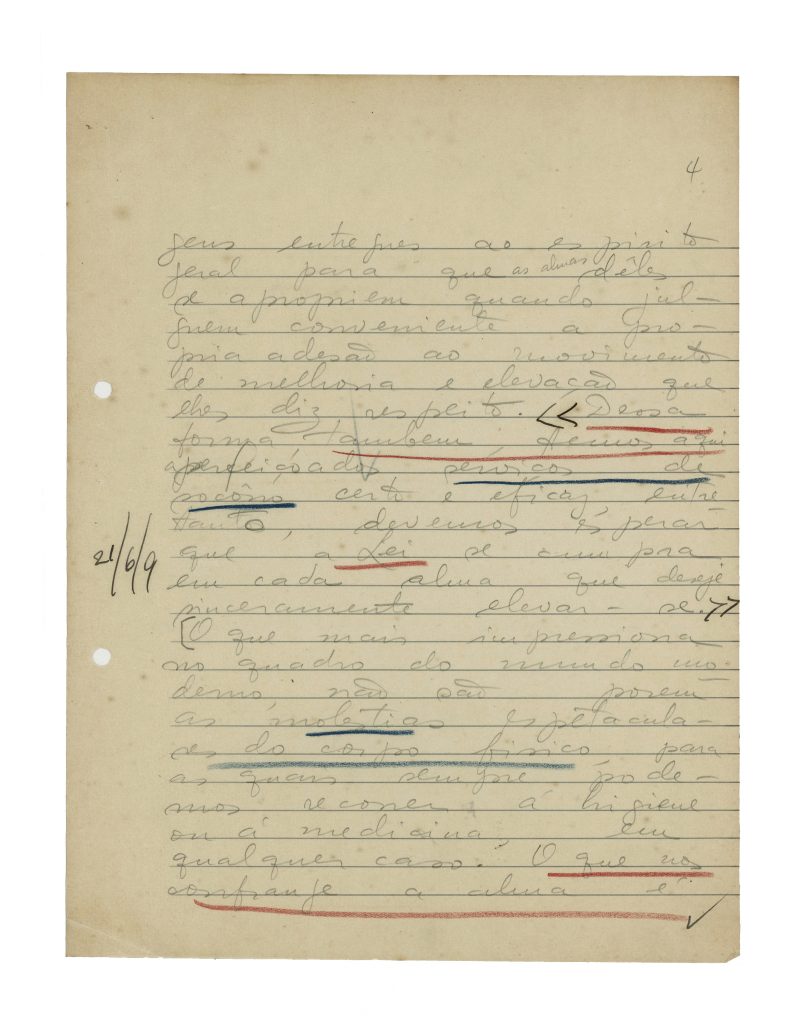 4
gens entregues ao espirito
geral para que as almas dêles
se apropriem quando jul-
guem conveniente a pro-
pria adesão ao movimento
de melhoria e elevação que
lhes diz respeito. << Dessa
forma tambem temos aqui
aperfeiçoados serviços de
socôrro certo e eficaz, entre
tanto, devemos esperar
que a Lei se cumpra
21/6/9
em cada alma que deseje
sinceramente elevar-se.>>
[O que mais impressiona
no quadro do mundo mo-
derno, não são porem
as molestias espetacula-
res do corpo fisico, para
as quais sempre pode-
mos recorrer á higiene
ou á medicina, em
qualquer caso. O que nos
confrange a alma é